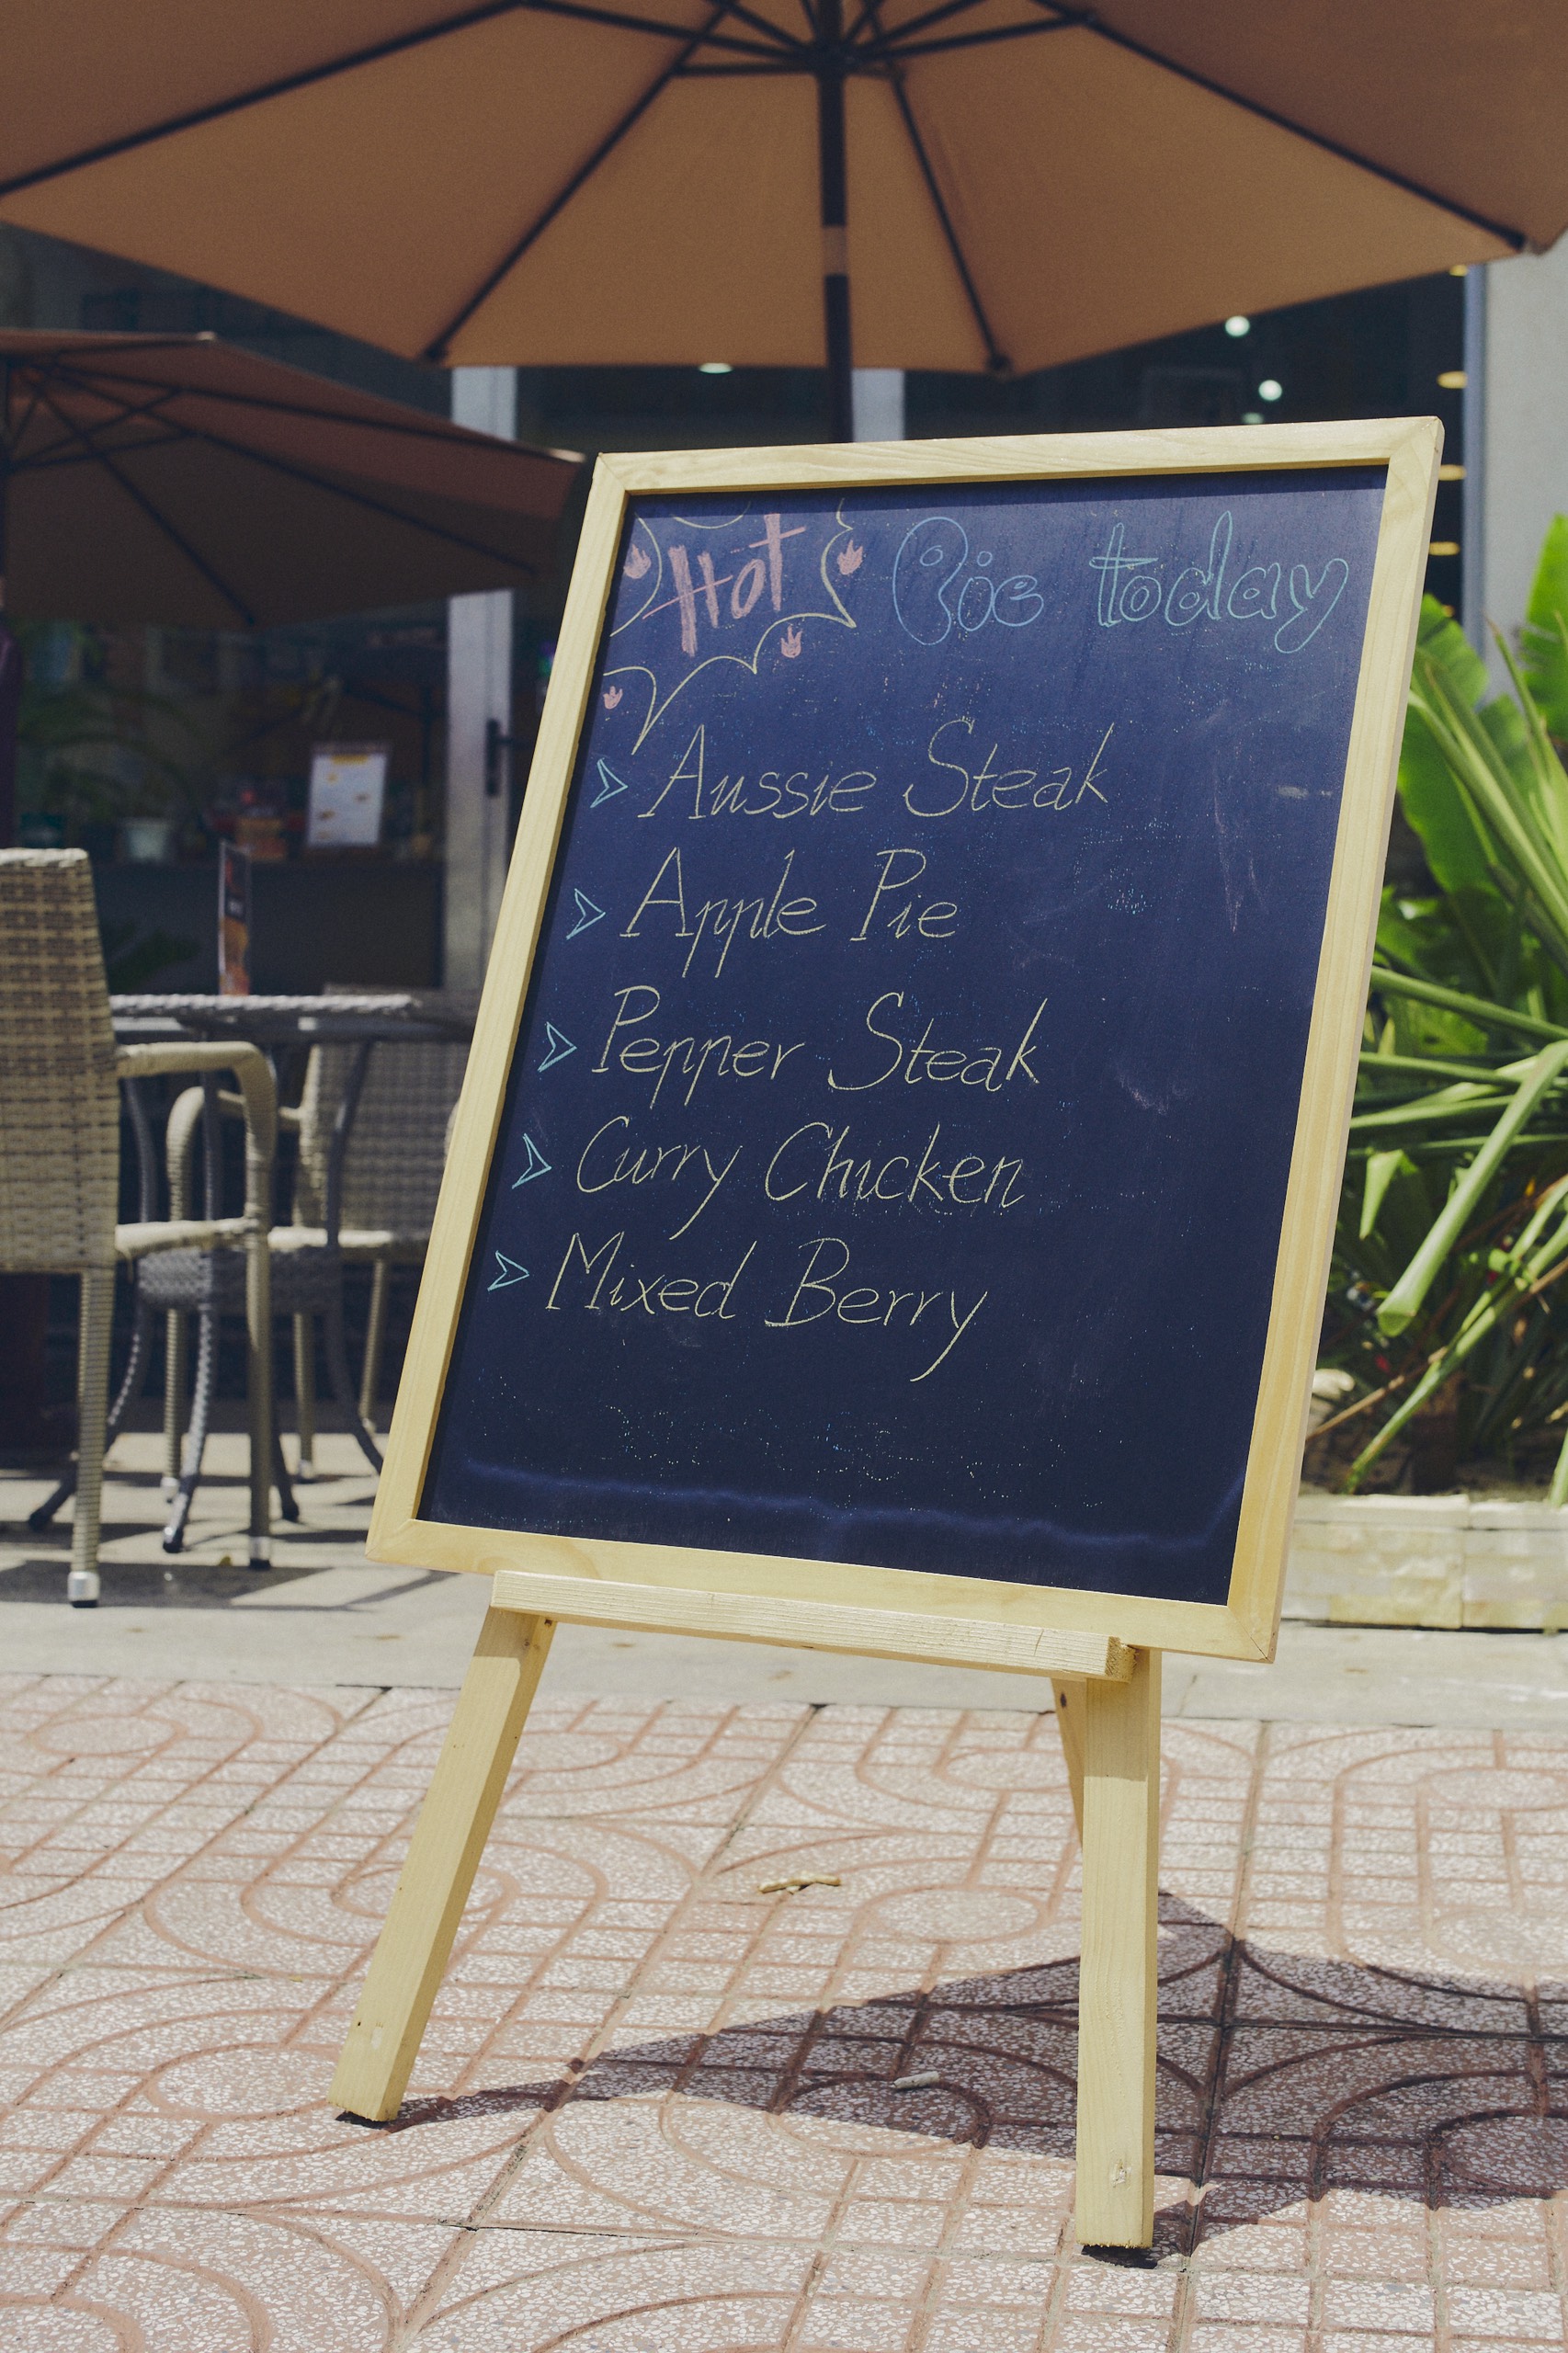 Hot Pie today
Aussie Steak
Apple Pie
Pepper Steak
Curry Chicken
Mixed Berry